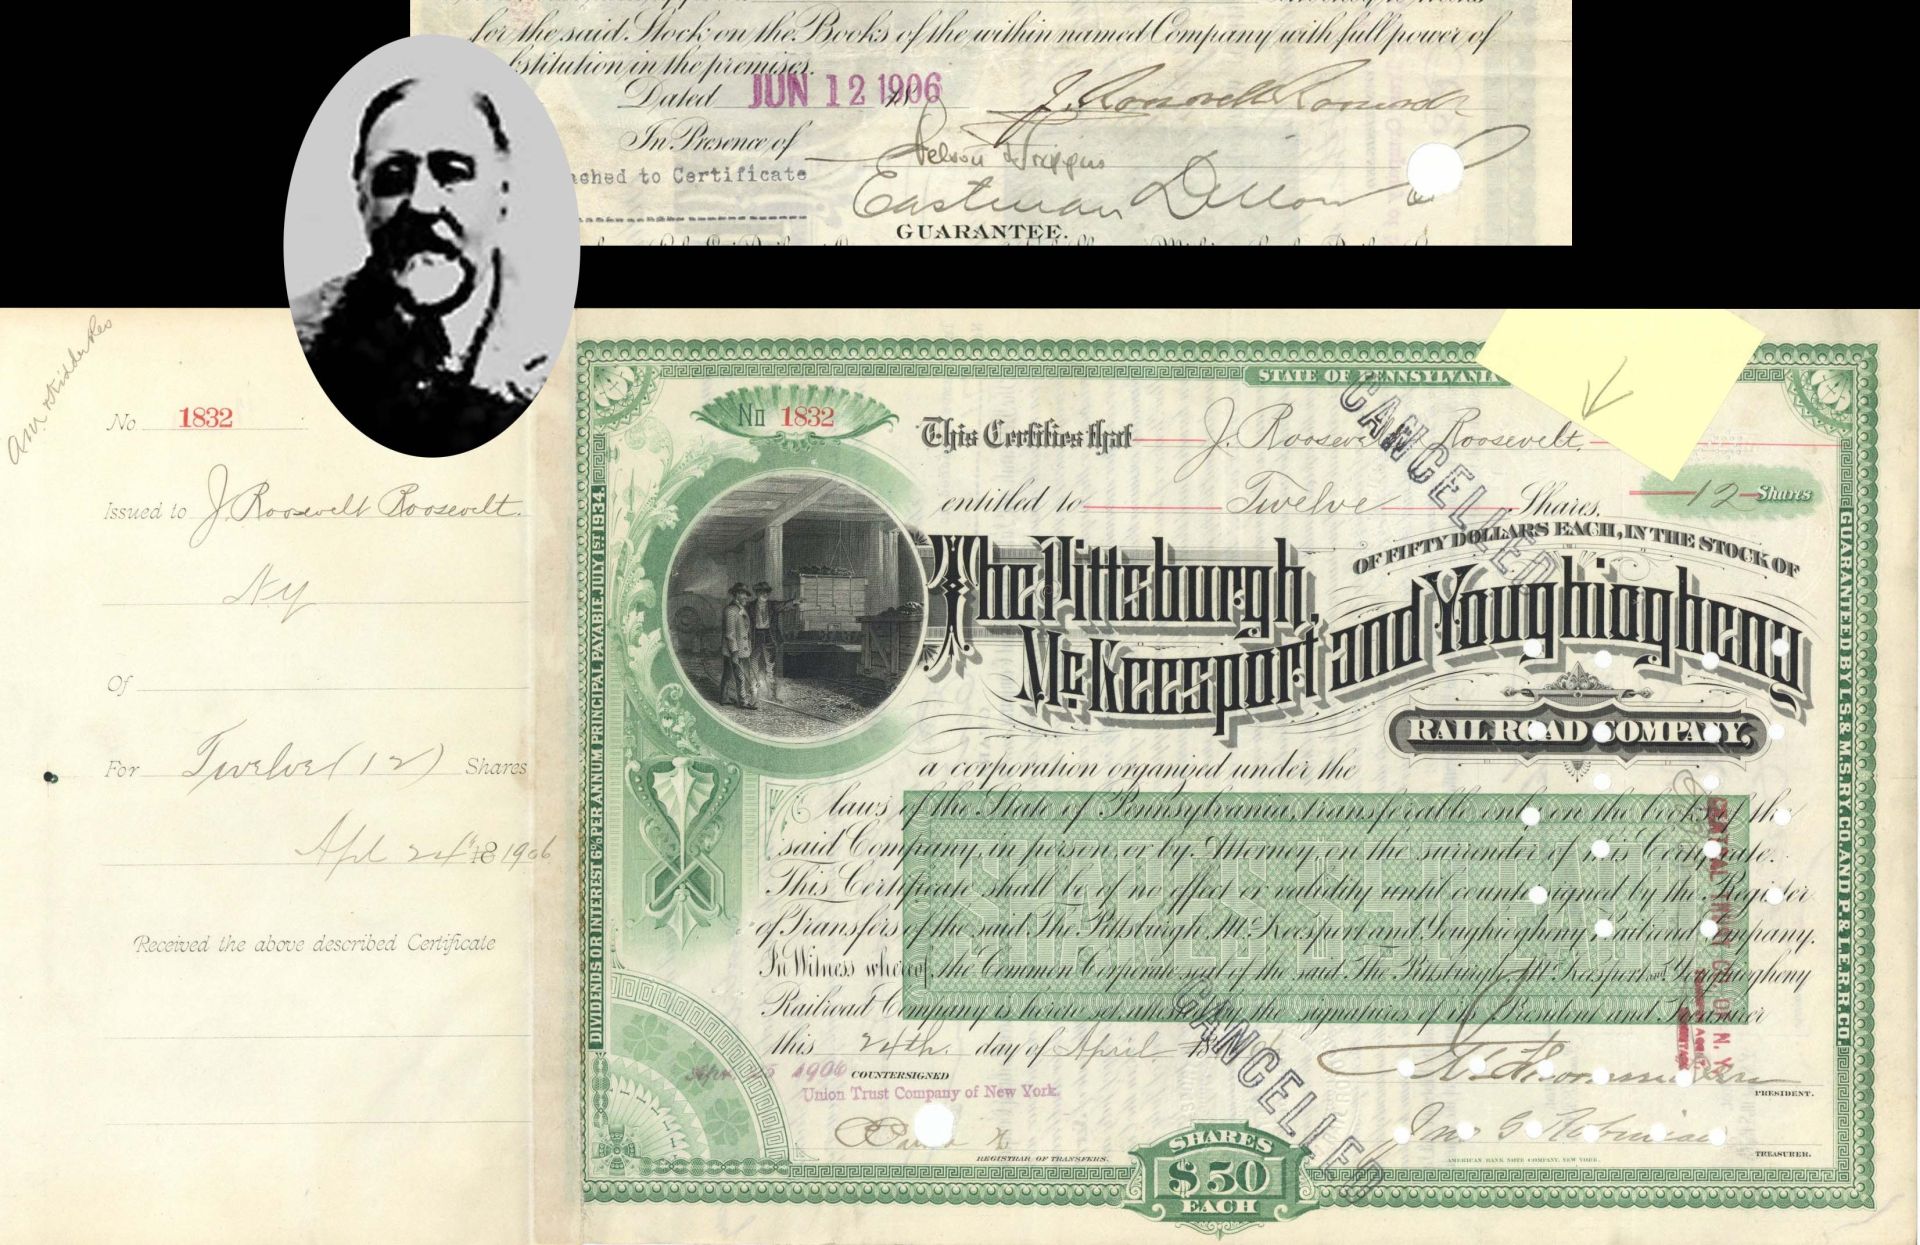 for the said Stock on the Books of the within named Company with full power of
bstitution in the premises.
Dated JUN 12 1906
J. Roosevelt Roosevelt
In Presence of
ached to Certificate
Eastman Dillon
GUARANTEE.
No 1832
Issued to J. Roosevelt Roosevelt.
NY
Of
For Twelve (12) Shares
Apl 24th 18 1906
Received the above described Certificate
STATE OF PENNSYLVANIA
No 1832
This Certifies that J. Roosevelt Roosevelt.
entitled to Twelve Shares,
12 Shares
OF FIFTY DOLLARS EACH, IN THE STOCK OF
The Pittsburgh,
McKeesport and Youghiogheny
RAILROAD COMPANY,
a corporation organized under the
laws of the State of Pennsylvania, transferable only on the books of the
said Company, in person, or by Attorney on the surrender of this Certificate.
This Certificate shall be of no effect or validity until countersigned by the Register
of Transfers of the said The Pittsburgh, McKeesport and Youghiogheny Railroad Company.
In Witness whereof, the Common Corporate seal of the said The Pittsburgh, McKeesport and Youghiogheny
Railroad Company is hereto set, attested by the signatures of its President and Treasurer
this 24th day of April 18
Apr. 25 1906 COUNTERSIGNED
Union Trust Company of New York.
REGISTRAR OF TRANSFERS.
PRESIDENT.
Jno G Robinson
TREASURER.
AMERICAN BANK NOTE COMPANY, NEW YORK.
SHARES
$50
EACH
DIVIDENDS OR INTEREST 6% PER ANNUM PRINCIPAL PAYABLE JULY 1ST 1934.
GUARANTEED BY L.S. & M.S. RY. CO. AND P. & L.E. R.R. CO.
CANCELLED
CANCELLED
CENTRAL TRUST CO. OF N. Y.